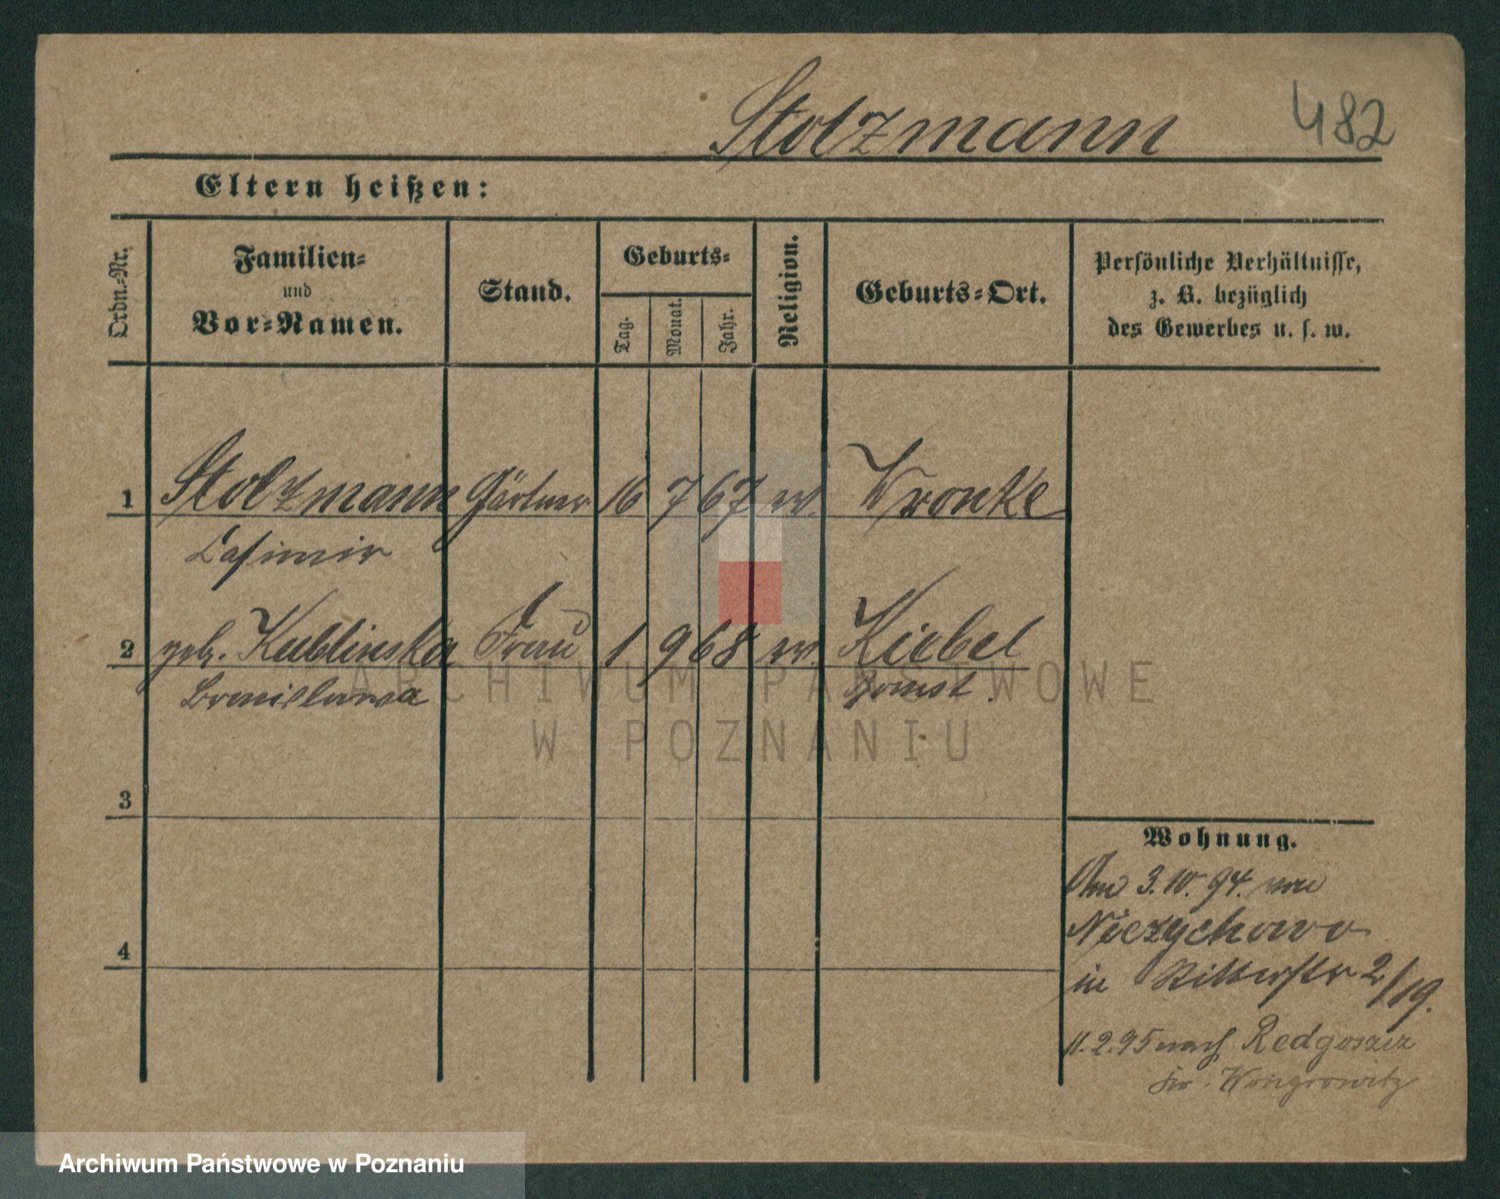 Stolzmann
482
Eltern heißen:
Ordn.-Nr.
Familien-
und
Vor-Namen.
Stand.
Geburts-
Tag.
Monat.
Jahr.
Religion.
Geburts-Ort.
Persönliche Verhältnisse,
z. B. bezüglich
des Gewerbes u. s. w.
1 Stolzmann Gärtner 16 7 67 Wronke
Casimir
2 geb. Kublinska Frau 1 9 68 Kiebel
Bronislawa Bomst.
3
4
Wohnung.
Am 3.10.94. von
Niezychowo
in Ritterstr 2/19.
11.2.95 nach Redgoszcz
Kr. Wongrowitz
ARCHIWUM PAŃSTWOWE
W POZNANIU
Archiwum Państwowe w Poznaniu